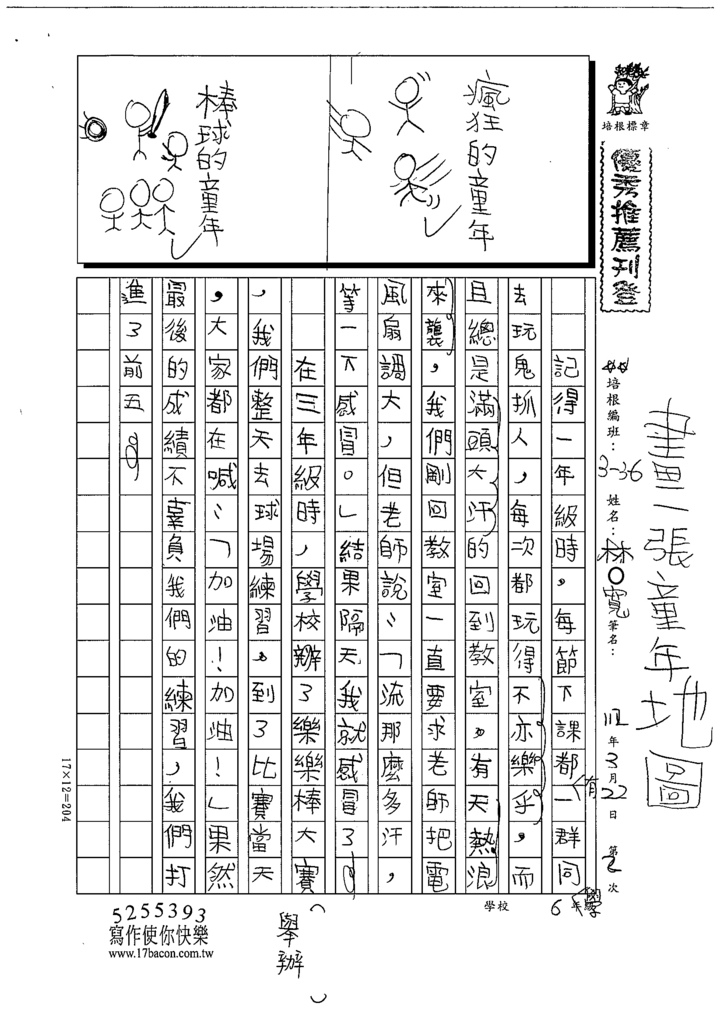 培根標章
優秀推薦刊登
培根編班：3-36 姓名：林〇寬 筆名：
112年3月22日 第2次
學校 6年級
畫一張童年地圖
瘋狂的童年
棒球的童年
記得一年級時，每節下課都有一群同學
去玩鬼抓人，每次都玩得不亦樂乎，而
且總是滿頭大汗的回到教室。有天熱浪
來襲，我們剛回教室一直要求老師把電
風扇調大，但老師說：「流那麼多汗，
等一下感冒。」結果隔天我就感冒了。
在三年級時，學校辦了樂樂棒大賽
，我們整天去球場練習。到了比賽當天
，大家都在喊：「加油！加油！」果然
最後的成績不辜負我們的練習，我們打
進了前五。
（舉辦）
17×12=204
5255393
寫作使你快樂
www.17bacon.com.tw